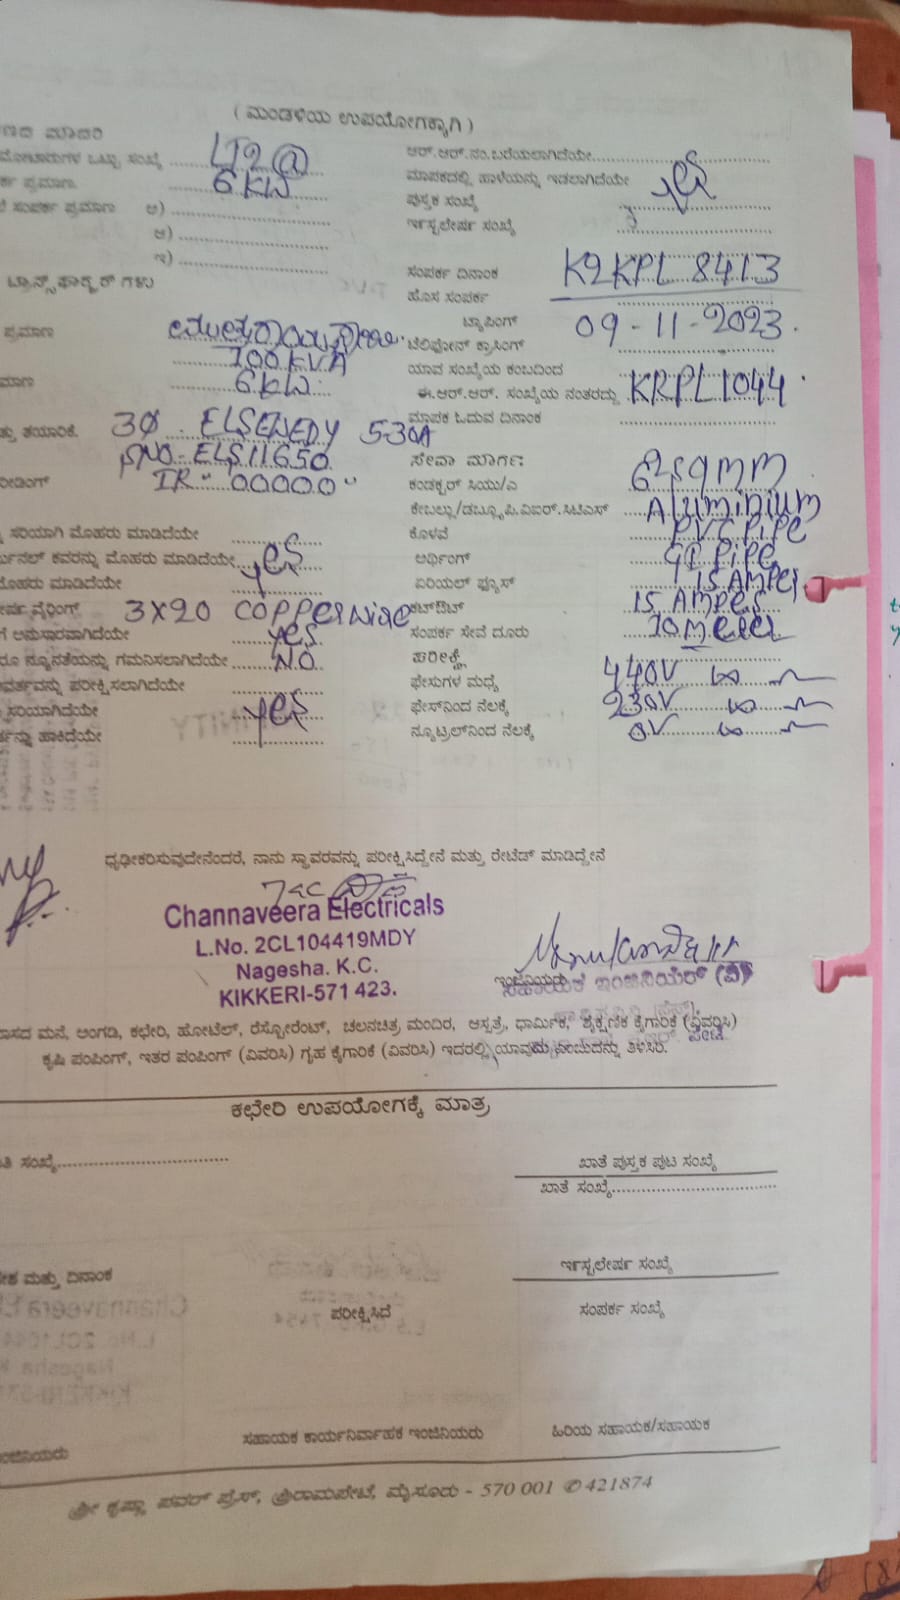 ( ಮಂಡಳಿಯ ಉಪಯೋಗಕ್ಕಾಗಿ )
ಮಾದರಿ
ಒಟ್ಟು ಸಂಖ್ಯೆ LT2 @
ಪ್ರಮಾಣ 6 KW
ಸಂಪರ್ಕ ಪ್ರಮಾಣ ಅ)
ಆ)
ಇ)
ಟ್ರಾನ್ಸ್‌ಫಾರ್ಮರ್ ಗಳು
ಪ್ರಮಾಣ
100 KVA
6 KW
ತಯಾರಿಕೆ. 3Ø ELSENEDY 5-30A
SNO-ELS11650
IR "00000"
ಸರಿಯಾಗಿ ಮೊಹರು ಮಾಡಿದೆಯೇ
ಕವರನ್ನು ಮೊಹರು ಮಾಡಿದೆಯೇ yes
ಮೊಹರು ಮಾಡಿದೆಯೇ
ವೈರಿಂಗ್ 3X20 COPPER wire
ಅನುಸಾರವಾಗಿದೆಯೇ yes
ನ್ಯೂನತೆಯನ್ನು ಗಮನಿಸಲಾಗಿದೆಯೇ NO
ಪರೀಕ್ಷಿಸಲಾಗಿದೆಯೇ
ಸರಿಯಾಗಿದೆಯೇ yes
ಹಾಕಿದೆಯೇ
ಆರ್.ಆರ್.ನಂ.ಬರೆಯಲಾಗಿದೆಯೇ
ಮಾಪಕದಲ್ಲಿ ಹಾಳೆಯನ್ನು ಇಡಲಾಗಿದೆಯೇ yes
ಪುಸ್ತಕ ಸಂಖ್ಯೆ
ಸಂಖ್ಯೆ
ಸಂಪರ್ಕ ದಿನಾಂಕ K2KPL 8413
ಹೊಸ ಸಂಪರ್ಕ
ಟ್ಯಾಪಿಂಗ್ 09-11-2023.
ಟೆಲಿಫೋನ್ ಕ್ರಾಸಿಂಗ್
ಯಾವ ಸಂಖ್ಯೆಯ ಕಂಬದಿಂದ
ಈ.ಆರ್.ಆರ್. ಸಂಖ್ಯೆಯ ನಂತರದ್ದು KRPL1044
ಮಾಪಕ ಓದುವ ದಿನಾಂಕ
ಸೇವಾ ಮಾರ್ಗ: 6 sqmm
ಕಂಡಕ್ಟರ್ ಸಿಯು/ಎ
ಕೇಬಲ್ಲು/ಡಬ್ಲ್ಯೂ.ಪಿ.ಐಆರ್.ಸಿಟಿಎಸ್ Aluminium
ಕೊಳವೆ PVC Pipe
ಅರ್ಥಿಂಗ್ GI Pipe
ಏರಿಯಲ್ ಫ್ಯೂಸ್ 15 AMPer
ಕಟ್‌ಔಟ್ 15 AMPes
ಸಂಪರ್ಕ ಸೇವೆ ದೂರು 10 meter
ಪರೀಕ್ಷೆ
ಫೇಸುಗಳ ಮಧ್ಯೆ 440V
ಫೇಸ್‌ನಿಂದ ನೆಲಕ್ಕೆ 230V
ನ್ಯೂಟ್ರಲ್‌ನಿಂದ ನೆಲಕ್ಕೆ 0V
ಧೃಢೀಕರಿಸುವುದೇನೆಂದರೆ, ನಾನು ಸ್ಥಾವರವನ್ನು ಪರೀಕ್ಷಿಸಿದ್ದೇನೆ ಮತ್ತು ರೇಟೆಡ್ ಮಾಡಿದ್ದೇನೆ
Channaveera Electricals
L.No. 2CL104419MDY
Nagesha. K.C.
KIKKERI-571 423.
ಇಂಜಿನಿಯರು
ಇಂಜಿನಿಯರ್ (ವಿ)
ಮನೆ, ಅಂಗಡಿ, ಕಛೇರಿ, ಹೋಟೆಲ್, ರೆಸ್ಟೋರೆಂಟ್, ಚಲನಚಿತ್ರ ಮಂದಿರ, ಆಸ್ಪತ್ರೆ, ಧಾರ್ಮಿಕ, ಶೈಕ್ಷಣಿಕ ಕೈಗಾರಿಕೆ (ವಿವರಿಸಿ)
ಕೃಷಿ ಪಂಪಿಂಗ್, ಇತರ ಪಂಪಿಂಗ್ (ವಿವರಿಸಿ) ಗೃಹ ಕೈಗಾರಿಕೆ (ವಿವರಿಸಿ) ಇದರಲ್ಲಿ ಯಾವುದು ಎಂಬುದನ್ನು ತಿಳಿಸಿರಿ.
ಕಛೇರಿ ಉಪಯೋಗಕ್ಕೆ ಮಾತ್ರ
ಸಂಖ್ಯೆ
ಖಾತೆ ಪುಸ್ತಕ ಪುಟ ಸಂಖ್ಯೆ
ಖಾತೆ ಸಂಖ್ಯೆ
ಸಂಖ್ಯೆ
ಮತ್ತು ದಿನಾಂಕ
ಪರೀಕ್ಷಿಸಿದೆ
ಸಂಪರ್ಕ ಸಂಖ್ಯೆ
ಸಹಾಯಕ ಕಾರ್ಯನಿರ್ವಾಹಕ ಇಂಜಿನಿಯರು
ಹಿರಿಯ ಸಹಾಯಕ/ಸಹಾಯಕ
ಶ್ರೀ ಕೃಷ್ಣಾ ಪವರ್ ಪ್ರೆಸ್, ಶ್ರೀರಾಮಪೇಟೆ, ಮೈಸೂರು - 570 001 ✆ 421874